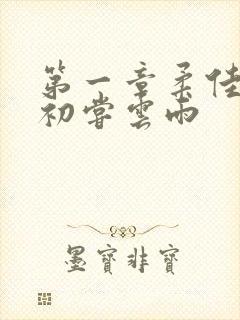 第一章柔佳
初嘗雲雨
墨寶非寶